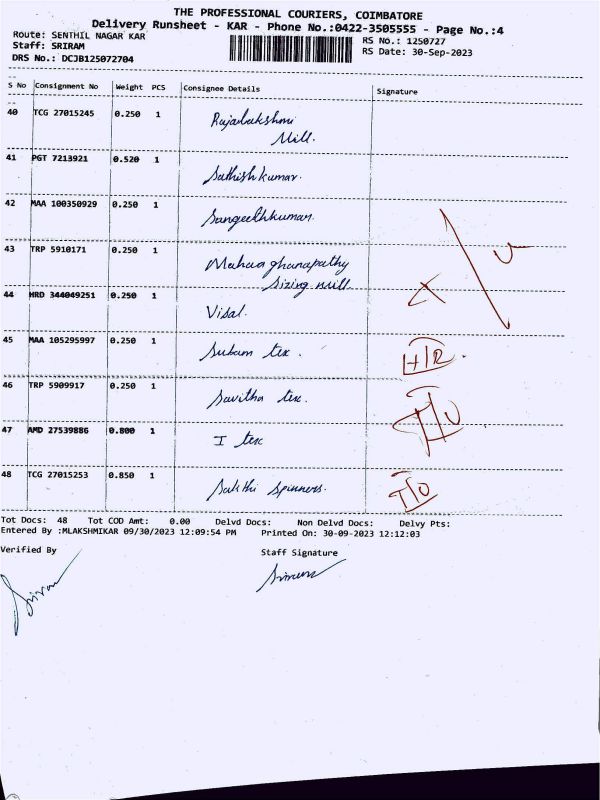 THE PROFESSIONAL COURIERS, COIMBATORE
Delivery Runsheet - KAR - Phone No.:0422-3505555 - Page No.:4
Route: SENTHIL NAGAR KAR RS No.: 1250727
Staff: SRIRAM RS Date: 30-Sep-2023
DRS No.: DCJB125072704
S No Consignment No Weight PCS Consignee Details Signature
40 TCG 27015245 0.250 1 Rajalakshmi
Mill.
41 PGT 7213921 0.520 1 Sathishkumar.
42 MAA 100350929 0.250 1 Sangeethkumar.
43 TRP 5910171 0.250 1 Mahaaghanapathy
Sizing mill
44 HRD 344049251 0.250 1 Visal.
45 MAA 105295997 0.250 1 Subam tex.
46 TRP 5909917 0.250 1 Savitha tex.
47 AMD 27539886 0.800 1 I tex
48 TCG 27015253 0.850 1 Sakthi spinners.
Tot Docs: 48 Tot COD Amt: 0.00 Delvd Docs: Non Delvd Docs: Delvy Pts:
Entered By :MLAKSHMIKAR 09/30/2023 12:09:54 PM Printed On: 30-09-2023 12:12:03
Verified By Staff Signature